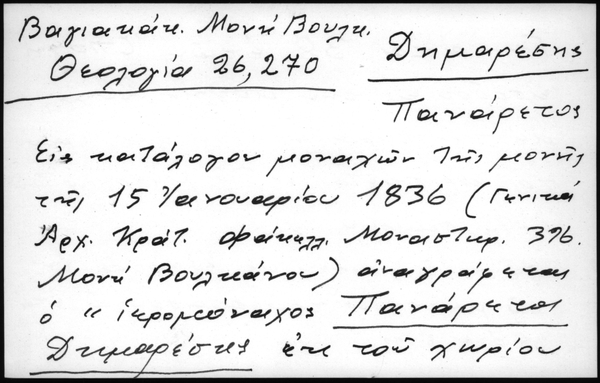 Βαγιακάκ. Μονή Βουλκ.
Θεολογία 26, 270
Δημαρέσης
Πανάρετος
Εἰς κατάλογον μοναχῶν τῆς μονῆς
τῆς 15 Ἰανουαρίου 1836 (Γενικά
Ἀρχ. Κράτ. Φάκελλ. Μοναστηρ. 396.
Μονή Βουλκάνου) ἀναγράφεται
ὁ "ἱερομόναχος Πανάρετος
Δημαρέσης ἐκ τοῦ χωρίου